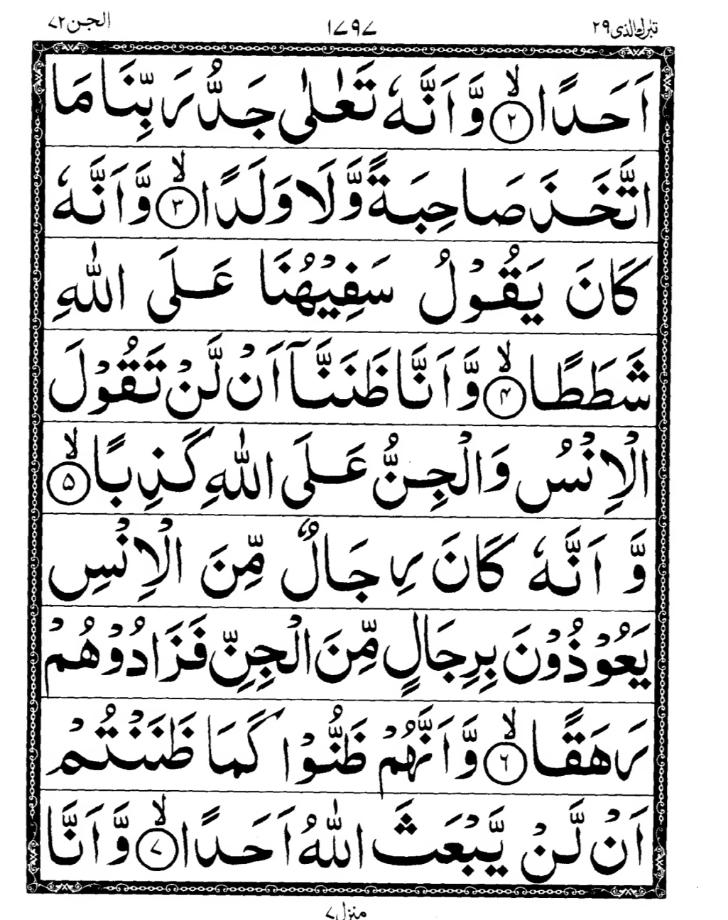 تبٰرك الذی ۲۹ ۱۷۹۷ الجن ۷۲
اَحَدًا ۙ﴿۲﴾ وَّ اَنَّهٗ تَعٰلٰی جَدُّ رَبِّنَا مَا
اتَّخَذَ صَاحِبَةً وَّلَا وَلَدًا ۙ﴿۳﴾ وَّ اَنَّهٗ
كَانَ يَقُوْلُ سَفِيْهُنَا عَلَى اللّٰهِ
شَطَطًا ۙ﴿۴﴾ وَّ اَنَّا ظَنَنَّاۤ اَنْ لَّنْ تَقُوْلَ
الْاِنْسُ وَالْجِنُّ عَلَى اللّٰهِ كَذِبًا ۙ﴿۵﴾
وَّ اَنَّهٗ كَانَ رِجَالٌ مِّنَ الْاِنْسِ
يَعُوْذُوْنَ بِرِجَالٍ مِّنَ الْجِنِّ فَزَادُوْهُمْ
رَهَقًا ۙ﴿۶﴾ وَّ اَنَّهُمْ ظَنُّوْا كَمَا ظَنَنْتُمْ
اَنْ لَّنْ يَّبْعَثَ اللّٰهُ اَحَدًا ۙ﴿۷﴾ وَّ اَنَّا
منزل ۷